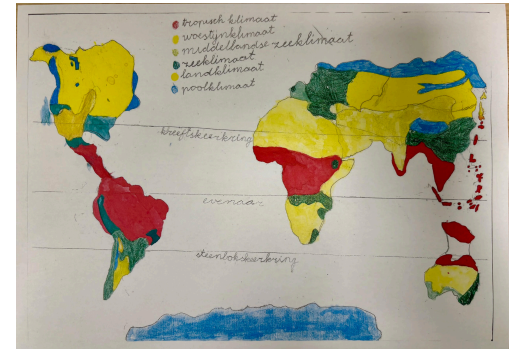 tropisch klimaat
woestijnklimaat
middellandse zeeklimaat
zeeklimaat
landklimaat
poolklimaat
kreeftskeerkring
evenaar
steenbokskeerkring